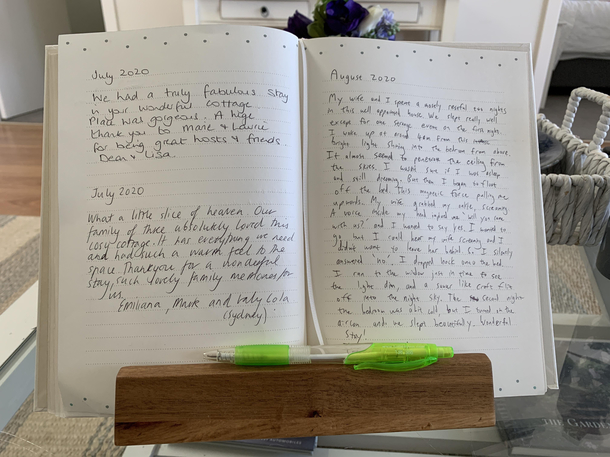 July 2020
We had a truly fabulous stay
in your wonderful cottage
Place was gorgeous. A huge
thank you to Marie & Laurie
for being great hosts & friends.
Dean & Lisa.
July 2020
What a little slice of heaven. Our
family of three absolutely loved this
cosy cottage. It has everything we need
and had such a warm feel to the
space. Thankyou for a wonderful
stay, such lovely family memories for
us.
Emiliana, Mark and baby Lola
(Sydney).
August 2020
My wife and I spent a mostly restful two nights
in this well appointed house. We slept really well
except for one strange event on the first night.
I woke up at around 4am from this
bright light shining into the bedroom from above.
It almost seemed to penetrate the ceiling from
the skies. I wasn't sure if I was asleep
and still dreaming. But then I began to float
off the bed. This magnetic force, pulling me
upwards. My wife grabbed my ankle, screaming.
A voice inside my head asked me 'will you come
with us?' and I wanted to say yes. I wanted to
go but I could hear my wife screaming and I
didn't want to leave her behind. So I silently
answered 'no'. I dropped back onto the bed.
I ran to the window just in time to see
the light dim, and a saucer like craft fire
off into the night sky. The second night
the bedroom was a bit cold, but I turned on the
aircon and we slept beautifully. Wonderful
Stay!
THE GARDEN